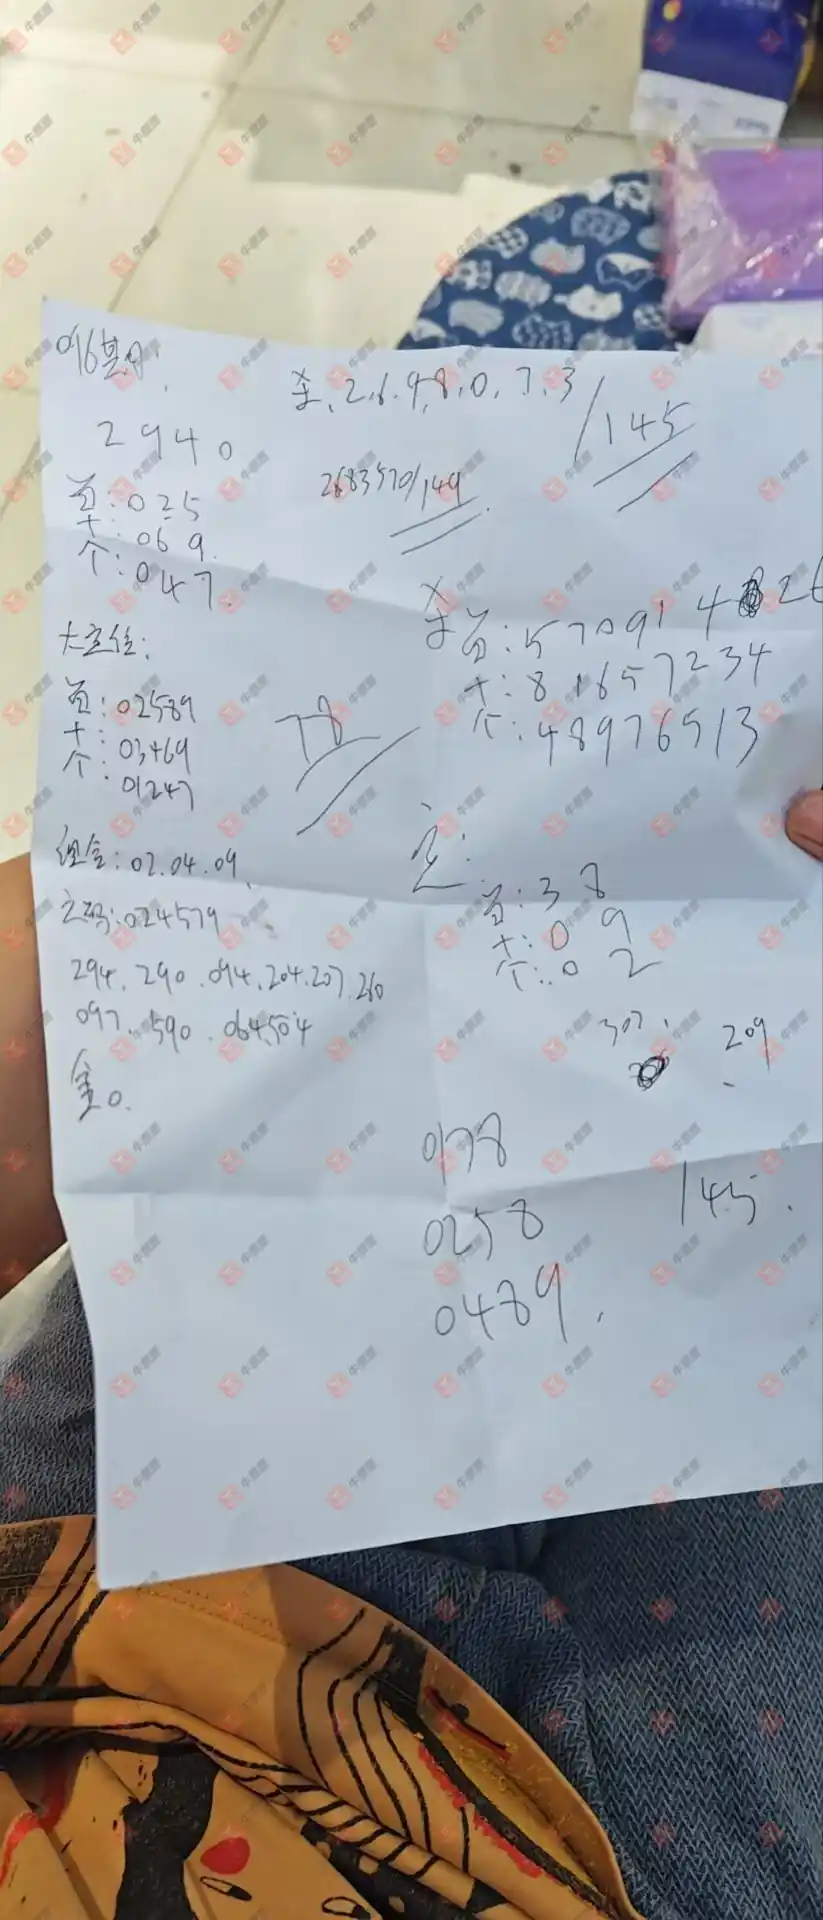 096期:
2940
百:025
十:069.
个:047.
大定位:
百:02589
十:03469
个:01247
组合:02.04.09.
主码:024579
294.290.094.204.207.260
097.590.064.504
金0.
杀.2.6.9.8.0.7.3/145
2683570/149
杀百:570914 26
十:81657234
个:48976513
78
定:
百:38
十:09
个:02
307.
209
0178
0258
0489.
145.
牛彩票